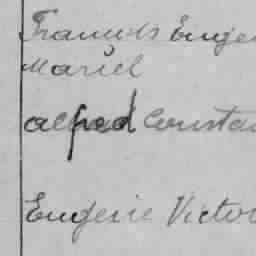 Francois Euge
Mariel
Alfred Consta
Eugenie Victo